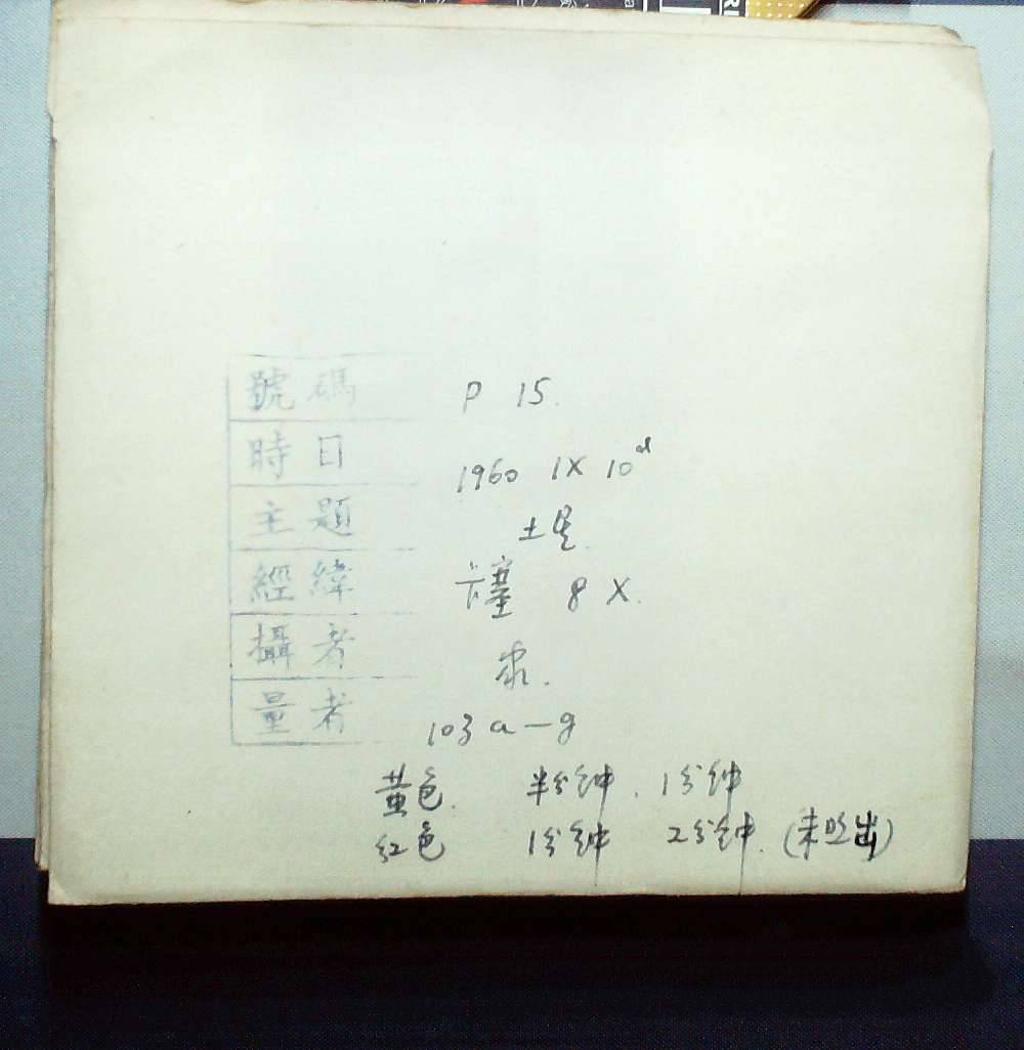 號碼 P 15.
時日 1960 IX 10d
主題 土星.
經緯 卡塞 8 X.
攝者
量者 103 a-g
黄色. 半分钟. 1分钟
红色 1分钟 2分钟. (未照出)